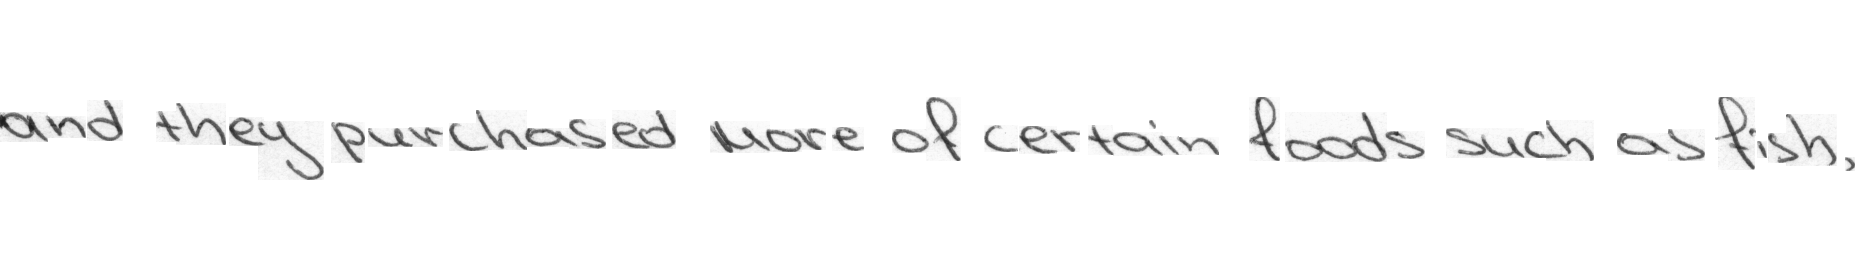 and they purchased more of certain foods such as fish,